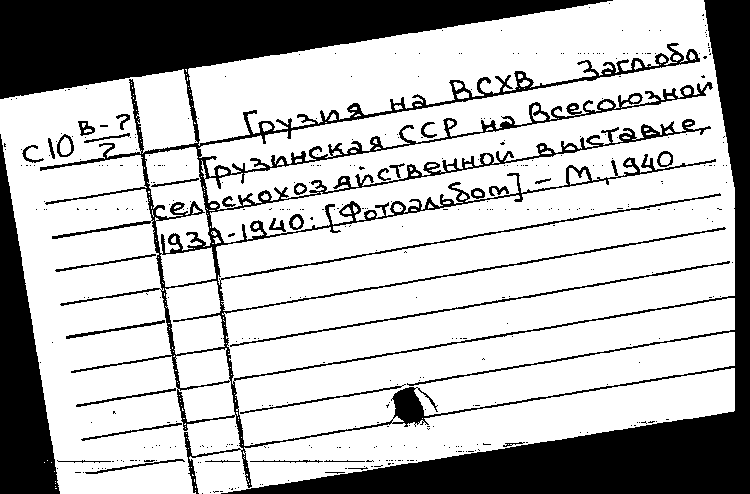 С10 В-?/?
Грузия на ВСХВ. Загл.обл.
Грузинская ССР на Всесоюзной
сельскохозяйственной выставке,
1939-1940: [Фотоальбом] - М., 1940.